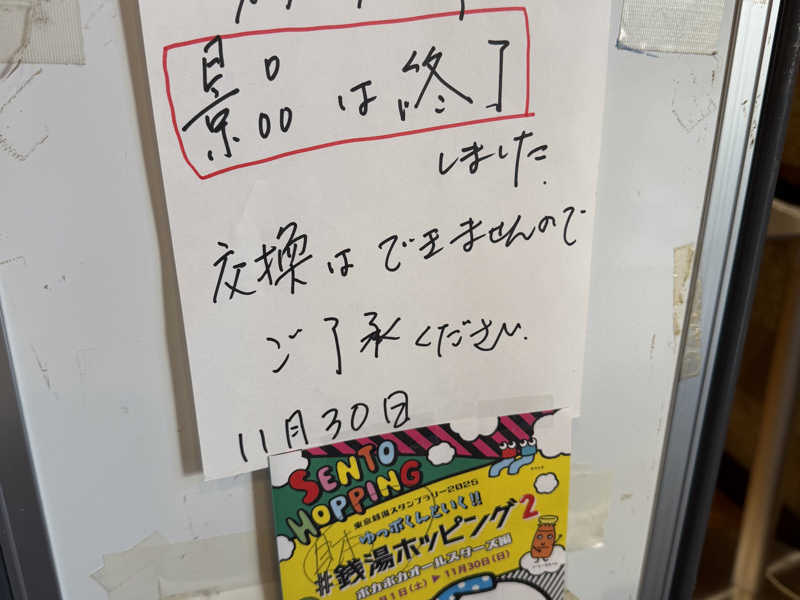 景品は終了
しました.
交換はできませんので
ご了承ください.
11月30日
SENTO
HOPPING
東京銭湯スタンプラリー2025
ゆっポくんといく!!
#銭湯ホッピング2
ポカポカオールスターズ編
月1日(土)▶11月30日(日)